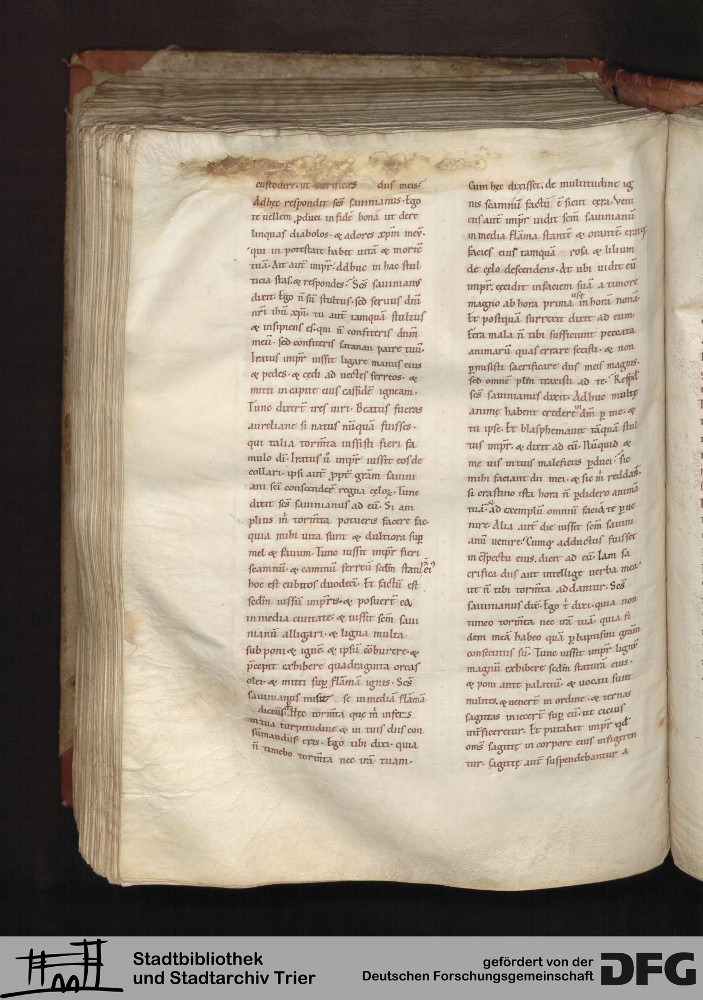 custodire. ut sacrifices diis meis.
Adhec respondit scs sauinianus. Ego
te uellem ꝑduci in fidē bonā ut dere
linquas diabolos. & adores xpm meū.
qui in potestate habet uitā & mortē
tuā. Ait aut̄ impr̄. Adhuc in hac stul
ticia stas. & respondes. Scs sauinianus
dixit. Ego n̄ sū stultus. sed seruus dn̄i
nr̄i ihū xpi. tu aut̄ tamquā stultus
& insipiens es. qui n̄ confiteris dn̄m
meū. sed confiteris satanan patrē tuū.
Iratus impr̄ iussit ligare manus eius
& pedes. & cędi ad uectes ferreos. &
mitti in capite eius cassidē igneam.
Tunc dixert̄ tres uiri. Beatus fueras
aureliane si natus nūquā fuisses.
qui talia torm̄ta iussisti fieri fa
mulo dī. Iratus ū impr̄ iussit eos de
collari. ipsi aut̄ ꝓpt̄ grām sauini
ani scī conscendert̄ regna cęloꝝ. Tunc
dixit scs sauinianus ad eū. Si am
plius m̄ torm̄ta potueris facere fac.
quia mihi uita sunt & dulciora sup̄
mel & fauum. Tunc iussit impr̄ fieri
scamnū. & caminū ferreū sedm̄ statūrā ei᷒
hoc est cubitos duodecī. Et factū est
sedm̄ iussū impr̄is. & posuert̄ eā
in media ciuitate. & iussit scm̄ saui
nianū alligari. & ligna multa
sub poni. & ignē. & ipsū cōburere. &
p̄cepit exhibere quadraginta orcas
olei. & mitti sup̄ flāmā ignis. Scs
sauinianus misit se in mediā flāmā
dicens. Hęc torm̄ta que m̄ infers
in tua turpitudine & in tuis diis con
sumandus eris. Ego tibi dixi. quia
n̄ timebo torm̄ta nec irā tuam.
Cum hec dixisset. de multitudine ig
nis scamnū factū ē sicut cęra. Veni
ens aut̄ impr̄ uidit scm̄ sauinianū
in media flāma stantē & orantē. eratq;
facies eius tamquā rosa & lilium
de cęlo descendens. At ubi uidit eū
impr̄. cecidit in faciem suā a timore
magno ab hora prima usq; in horā nonā.
Et postquā surrexit dixit ad eum.
Fera mala n̄ tibi sufficiunt peccata
animarū quas errare fecisti. & non
ꝑmisisti sacrificare diis meis magnis.
sed omnē plm̄ traxisti ad te. Resp̄
scs sauinianus dixit. Adhuc multę
animę habent credere in dm̄ ꝑ me. &
tu ipse. Et blasphemauit tāquā stul
tus impr̄. & dixit ad eū. Nūquid &
me uis intus maleficus ꝑduci. sic
mihi faciant dii mei. & sic m̄ reddant.
si crastino ista hora n̄ ꝑdidero animā
tuā. Ad exemplū omniū faciā te ꝑue
nire. Alia aut̄ die iussit scm̄ saui
anū uenire. Cumq; adductus fuisset
in cōspectu eius. dixit ad eū. Iam sa
crifica diis aut intellige uerba mea.
ut n̄ tibi torm̄ta addantur. Scs
sauinianus dix̄. Ego t̄ dixi. quia non
timeo torm̄ta nec irā tuā. quia fi
dem meā habeo quā ꝑ baptismi grām
consecutus sū. Tunc iussit impr̄ lignū
magnū exhibere sedm̄ staturā eius.
& poni ante palatiū. & uocati sunt
milites. & uenert̄ in ordine. & ternas
sagittas iniecert̄ sup̄ eū. ut cicius
int̄ficeretur. Et putabat impr̄ qd̄
oms̄ sagittę in corpore eius infigeren
tur. sagittę aut̄ suspendebantur a
Stadtbibliothek
und Stadtarchiv Trier
gefördert von der
Deutschen Forschungsgemeinschaft
DFG